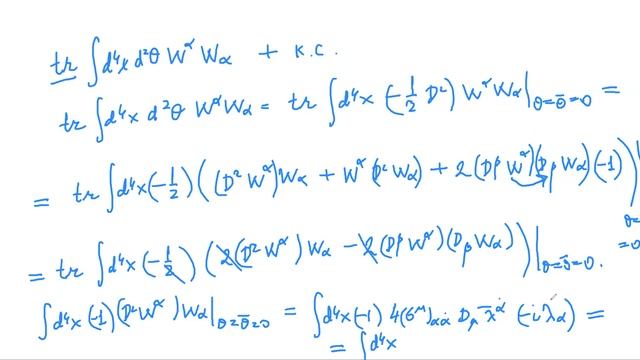 tr ∫d⁴x d²θ W^α W_α + к.с.
tr ∫d⁴x d²θ W^α W_α = tr ∫d⁴x (-1/2 D²) W^α W_α |_{θ=θ̄=0} =
= tr ∫d⁴x (-1/2) ( (D² W^α) W_α + W^α (D² W_α) + 2 (D_β W^α)(D_β W_α)(-1) ) |_{θ= =0
= tr ∫d⁴x (-1/2) ( 2(D² W^α) W_α - 2 (D^β W^α)(D_β W_α) ) |_{θ=θ̄=0}.
∫d⁴x (-1) (D² W^α) W_α |_{θ=θ̄=0} = ∫d⁴x (-1) 4 (σ^μ)_{αα̇} D_μ λ̄^{α̇} (-i λ_α) =
= ∫d⁴x